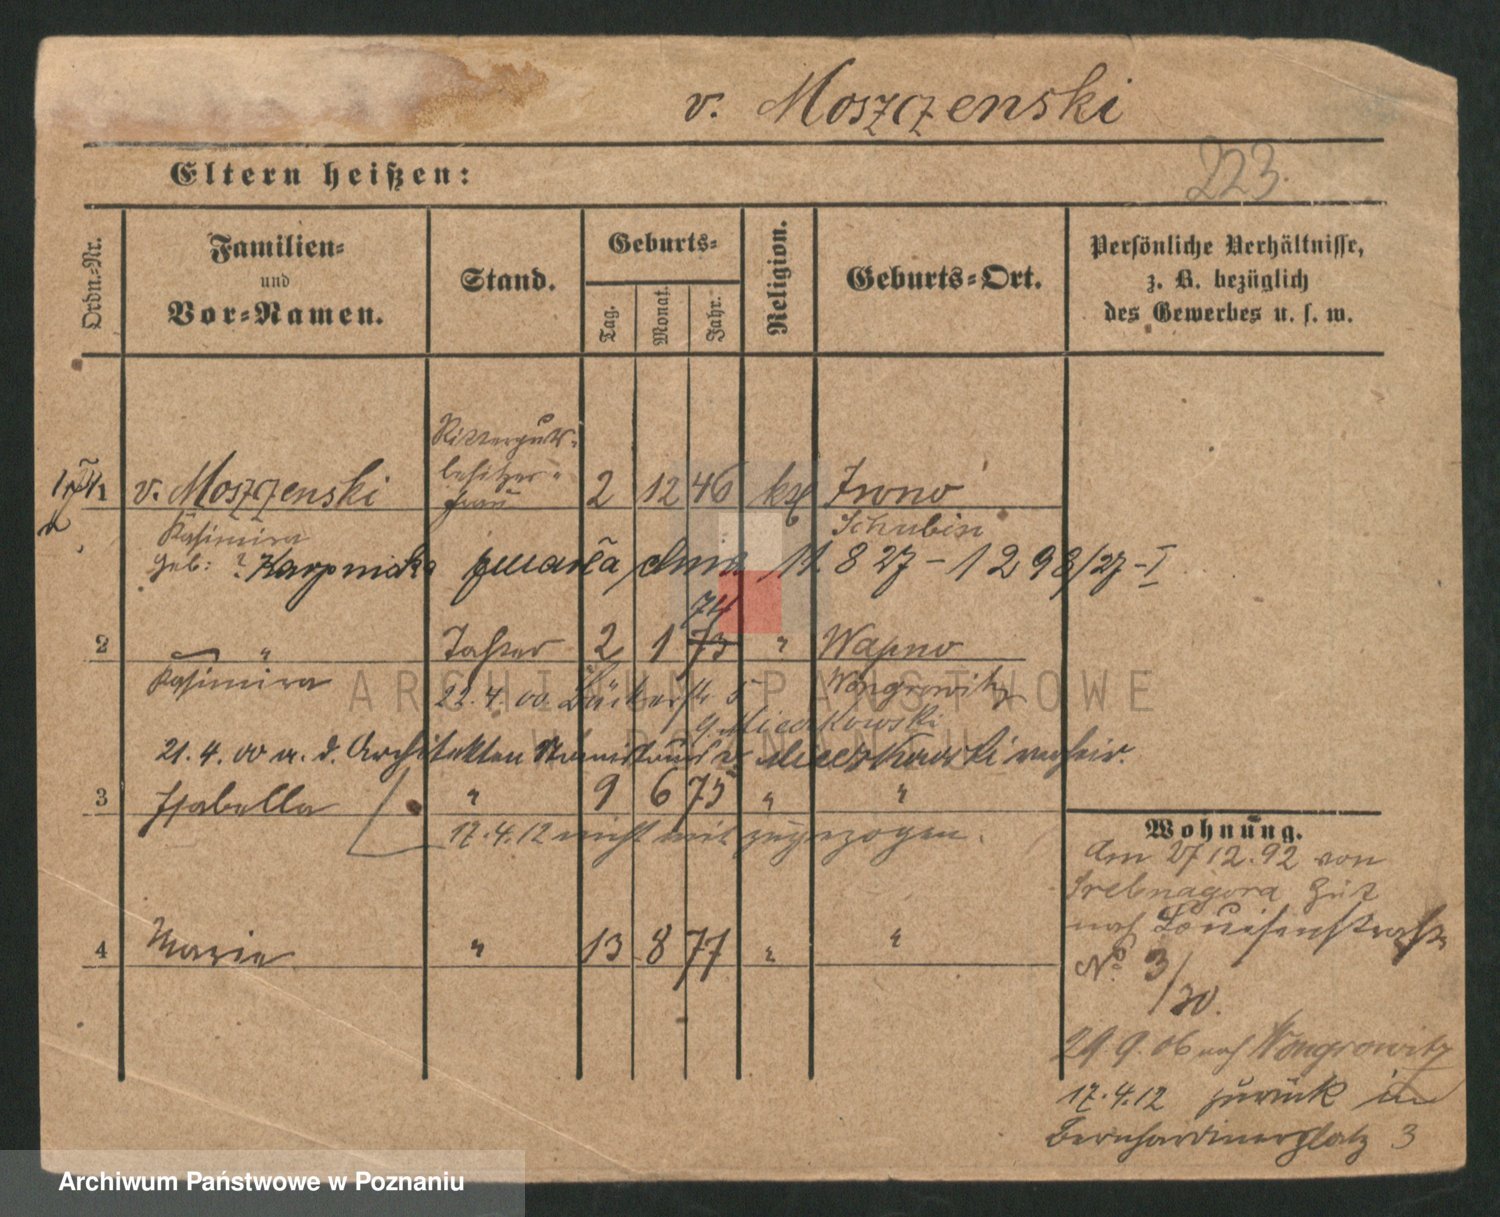 v. Moszczenski
Eltern heißen:
223.
Ordn.-Nr.
Familien-
und
Vor-Namen.
Stand.
Geburts-
Tag.
Monat.
Jahr.
Religion.
Geburts-Ort.
Persönliche Verhältnisse,
z. B. bezüglich
des Gewerbes u. s. w.
Ritterguts-
besitzer-
frau
v. Moszczenski 2 12 46 kth
Kasimira Schubin
geb: ? Karpinska zmarła dnia 11 8 27 - 1298/27-I
74
2 " Tochter 2 1 73 " Wapno
Kasimira 22.4.00. Bäckerstr 5 Wongrowitz
21.4.00 a. d. Architekten Stanislaus v. Mieczkowski verheir.
3 Isabella " 9 6 75 " "
17.4.12 nicht mit zugezogen.
4 Marie " 13 8 77 " "
Wohnung.
Am 27/12.92 von
Srebnagora Gut
nach Louisenstraße
No 3/
20.
29.9.06 nach Wongrowitz
17.4.12 zurück in
Bernhardinerplatz 3
ARCHIWUM PAŃSTWOWE
W POZNANIU
Archiwum Państwowe w Poznaniu